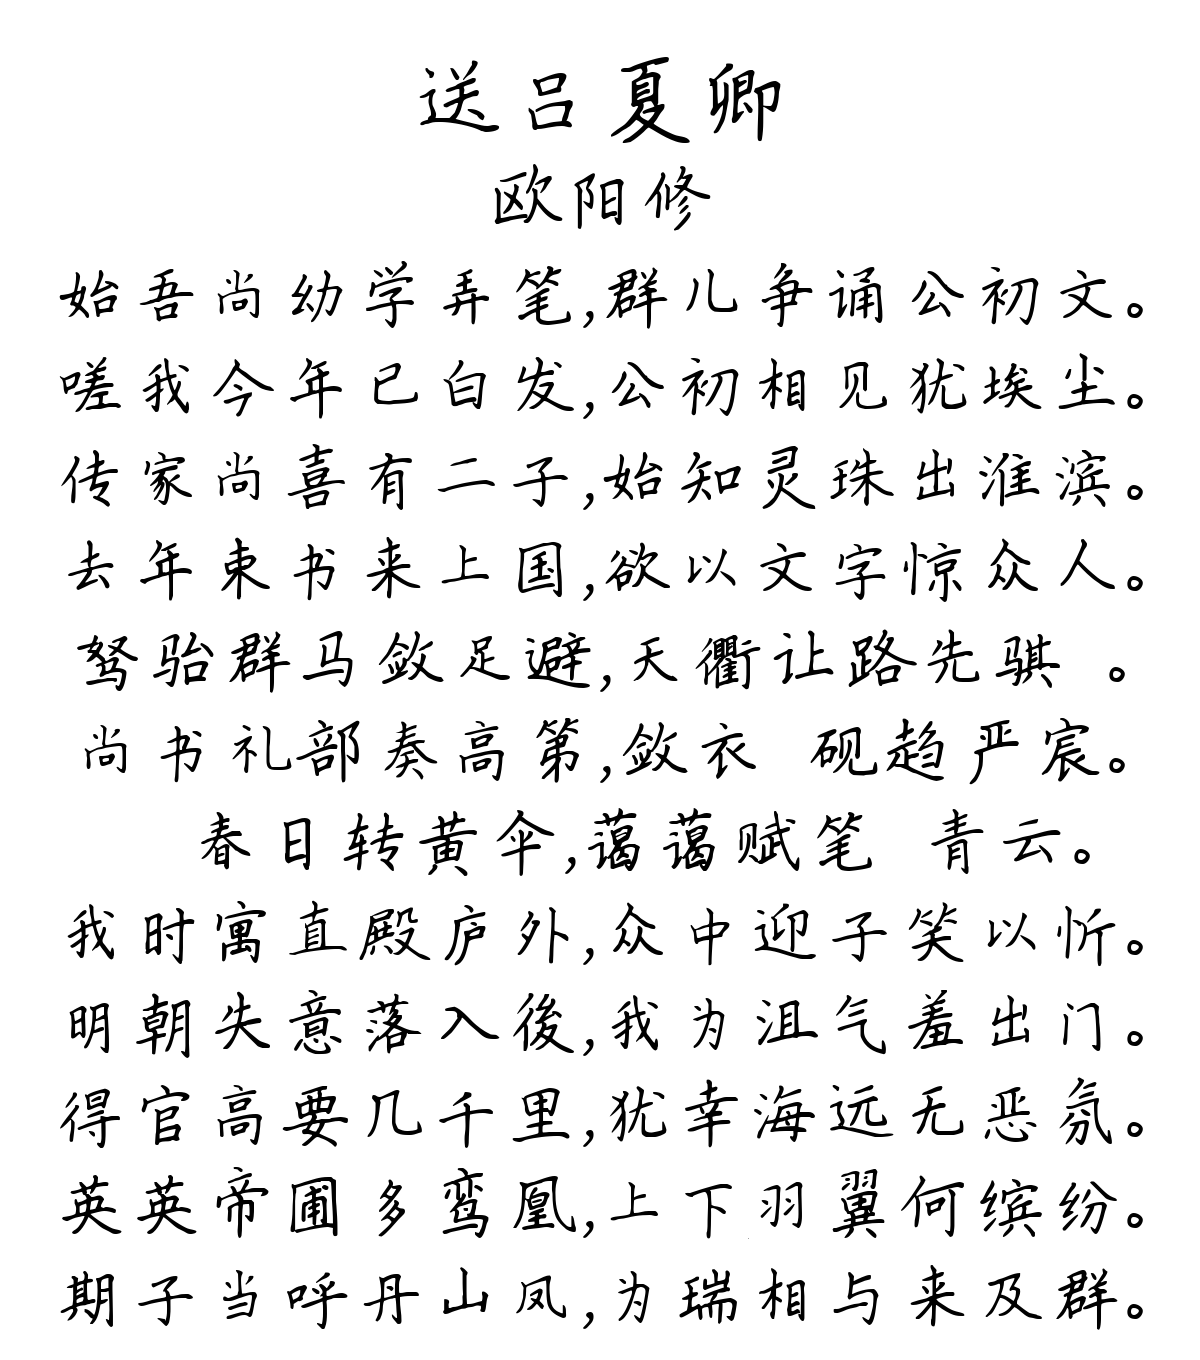 送吕夏卿
欧阳修
始吾尚幼学弄笔,群儿争诵公初文。
嗟我今年已白发,公初相见犹埃尘。
传家尚喜有二子,始知灵珠出淮滨。
去年束书来上国,欲以文字惊众人。
驽骀群马敛足避,天衢让路先骐 。
尚书礼部奏高第,敛衣 砚趋严宸。
春日转黄伞,蔼蔼赋笔 青云。
我时寓直殿庐外,众中迎子笑以忻。
明朝失意落入後,我为沮气羞出门。
得官高要几千里,犹幸海远无恶氛。
英英帝圃多鸾凰,上下羽翼何缤纷。
期子当呼丹山凤,为瑞相与来及群。